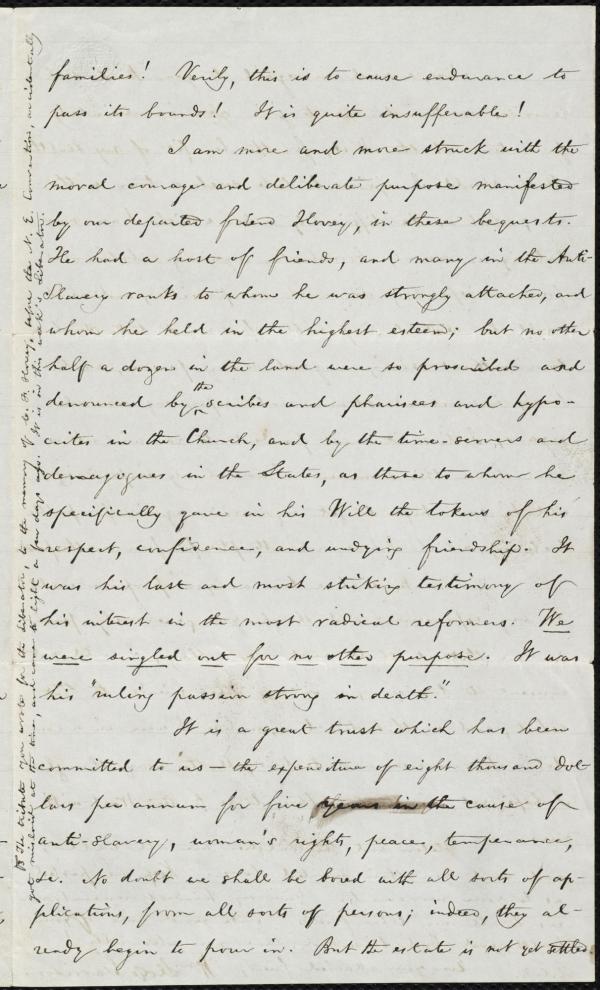 families! Verily, this is to cause endurance to
pass its bounds! It is quite insufferable!
I am more and more struck with the
moral courage and deliberate purpose manifested
by our departed friend Hovey, in these bequests.
He had a host of friends, and many in the Anti-
Slavery ranks to whom he was strongly attached, and
whom he held in the highest esteem; but no other
half a dozen in the land were so proscribed and
denounced by the scribes and pharisees and hypo-
crites in the Church, and by the time-servers and
demagogues in the States, as those to whom he
specifically gave in his Will the tokens of his
respect, confidence, and undying friendship. It
was his last and most striking testimony of
his interest in the most radical reformers. We
were singled out for no other purpose. It was
his "ruling passion strong in death."
It is a great trust which has been
committed to us — the expenditure of eight thousand dol-
lars per annum for five years in the cause of
anti-slavery, woman's rights, peace, temperance,
&c. No doubt we shall be bored with all sorts of ap-
plications, from all sorts of persons; indeed, they al-
ready begin to pour in. But the estate is not yet settled
The tribute you wrote for the Liberator, to the memory of C. F. Hovey, before the N. E. Convention, accidentally
got mislaid at the time, and came to light a few days ago. It is in this week's Liberator.